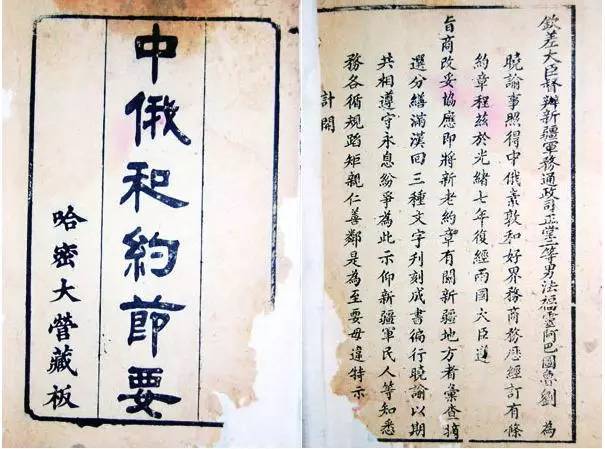 中俄和約節要
哈密大營藏板
欽差大臣督辦新疆軍務通政司正堂二等男法福靈阿巴圖魯劉 為
曉諭事照得中俄素敦和好界務商務厯經訂有條
約章程茲於光緒七年復經兩國大臣遵
旨商改妥協應即將新老約章有關新疆地方者彙查摘
選分繕滿漢回三種文字刋刻成書徧行曉諭以期
共相遵守永息紛爭為此示仰新疆軍民人等知悉
務各循規蹈矩親仁善鄰是為至要毋違特示
計開